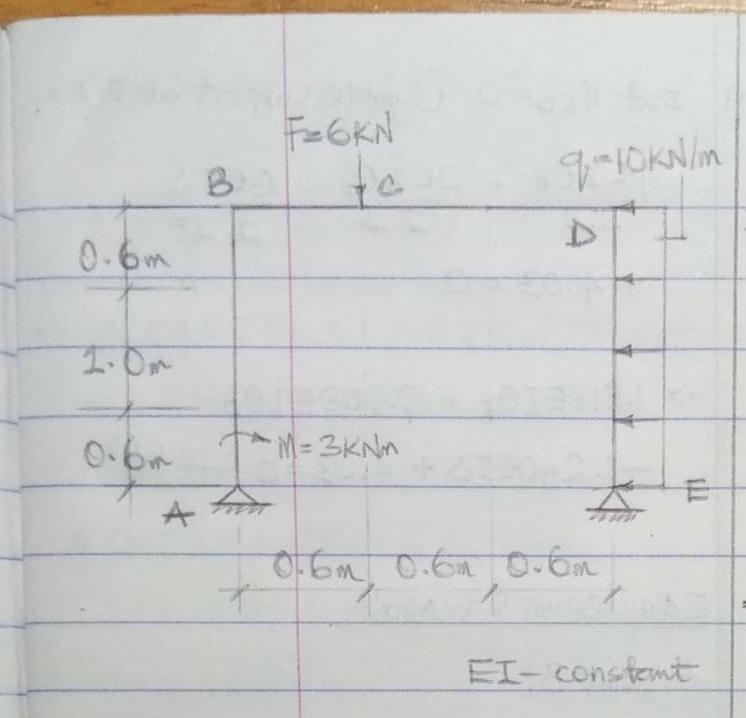 F=6KN
q=10KN/m
B
C
D
0.6m
1.0m
0.6m
M=3KNm
A
E
0.6m 0.6m 0.6m
EI- constant